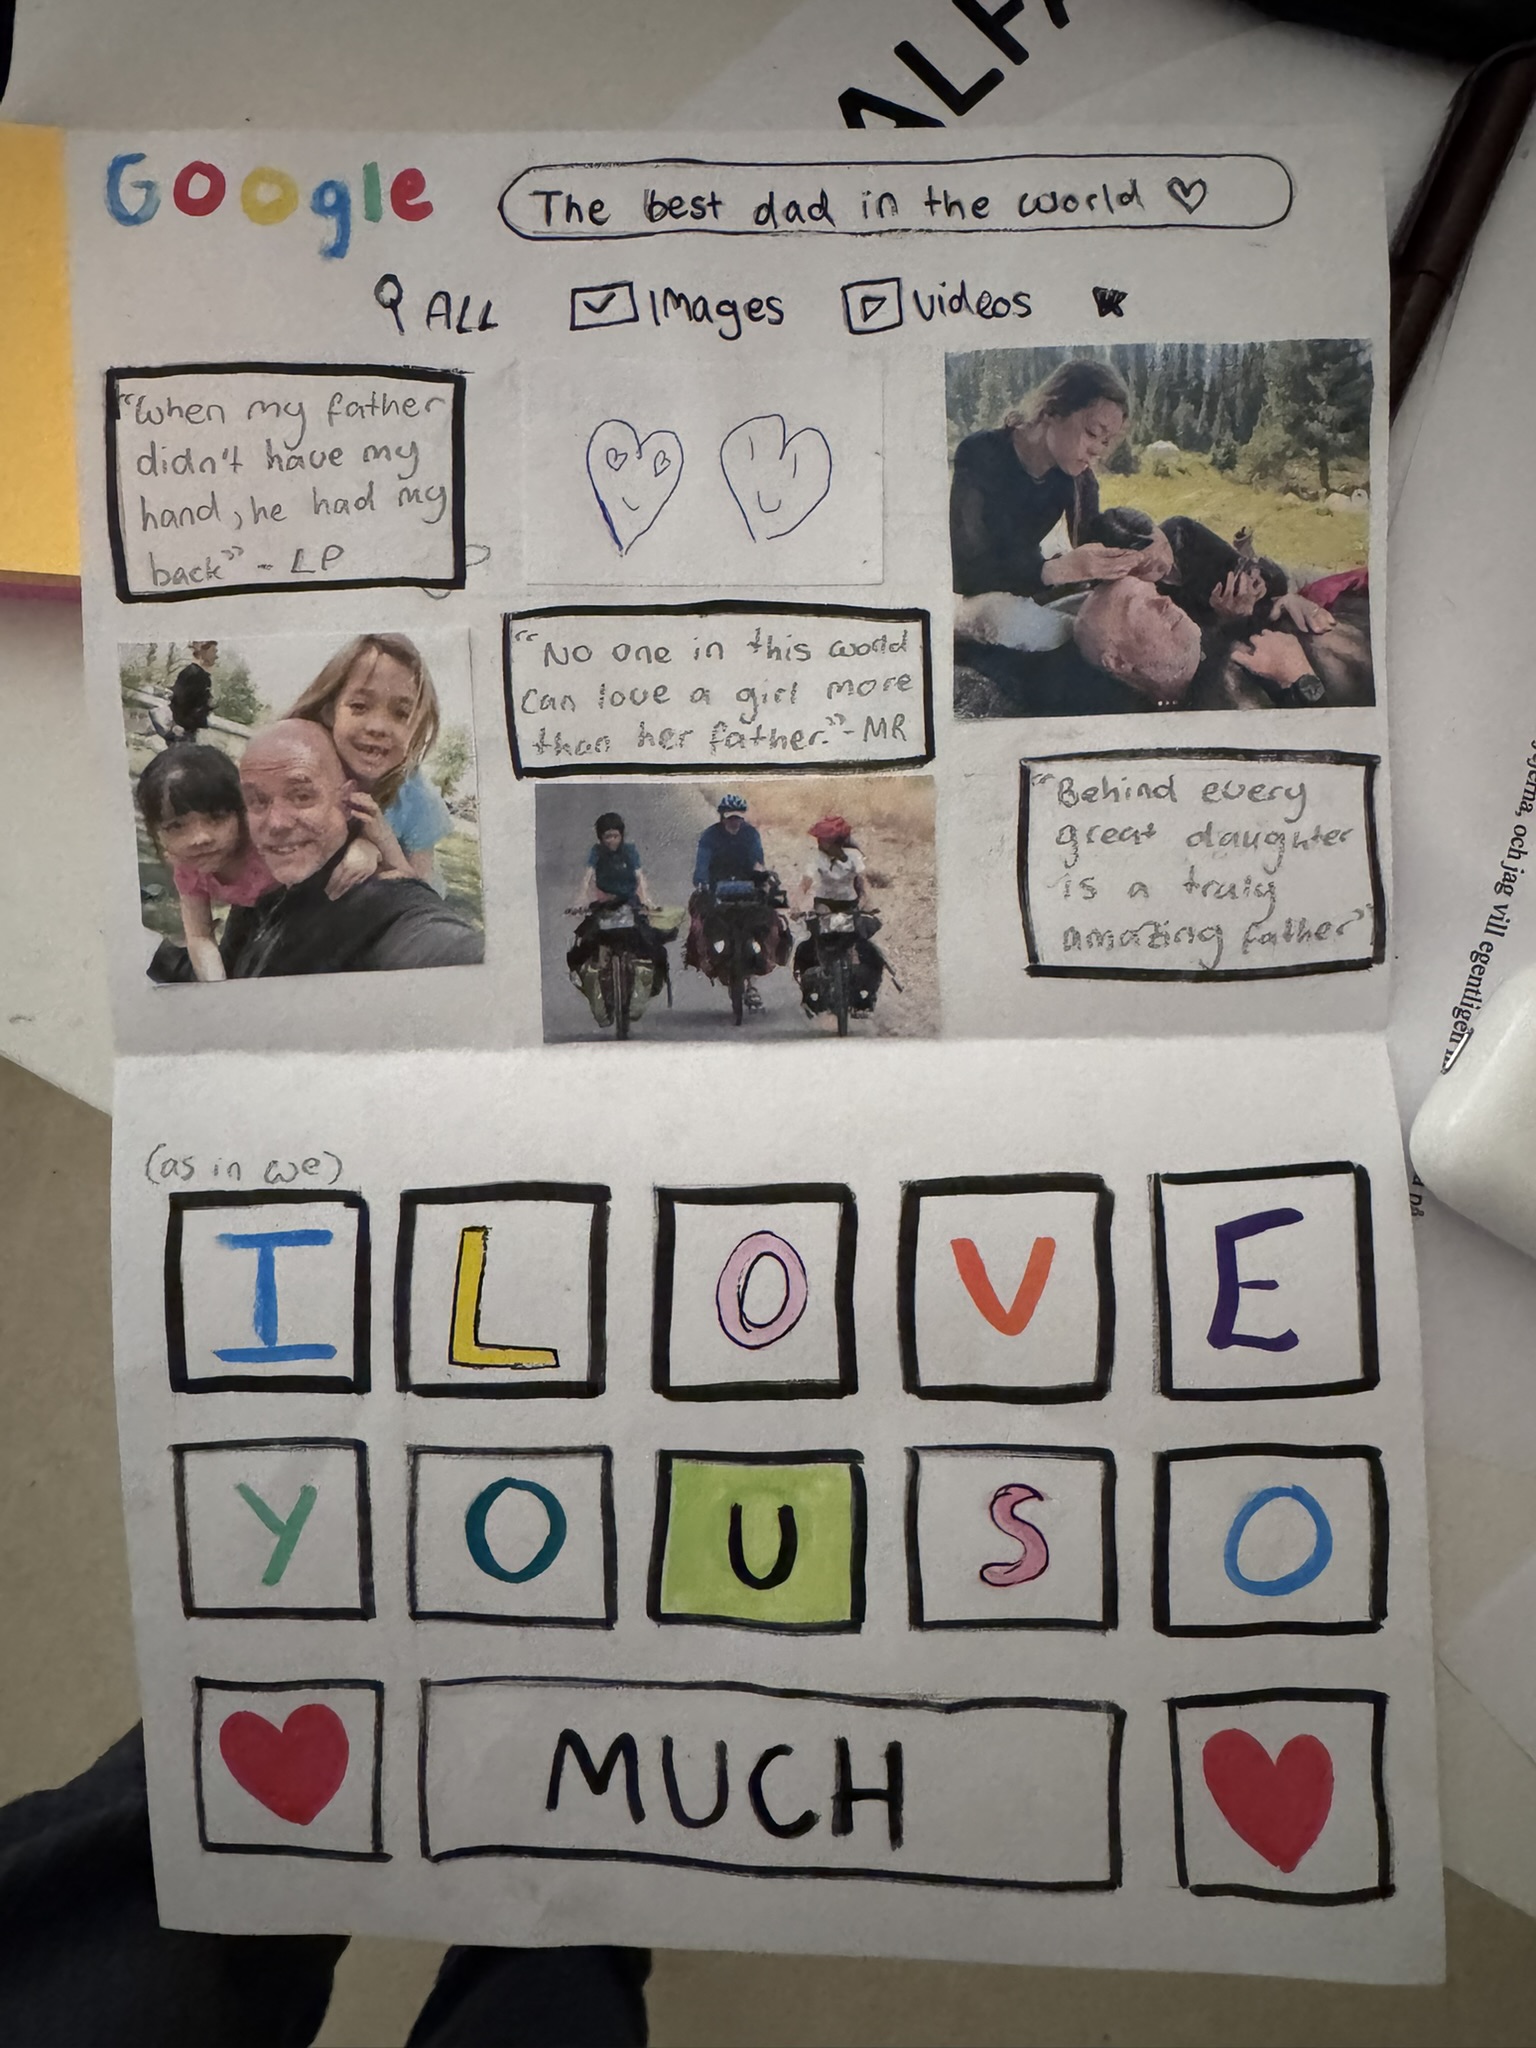 ALFA
Google
The best dad in the world ♡
ALL
Images
videos
"When my father
didn't have my
hand, he had my
back" - LP
"No one in this world
can love a girl more
than her father." - MR
"Behind every
great daughter
is a truly
amazing father"
och jag vill egentligen
(as in we)
I L O V E
Y O U S O
MUCH